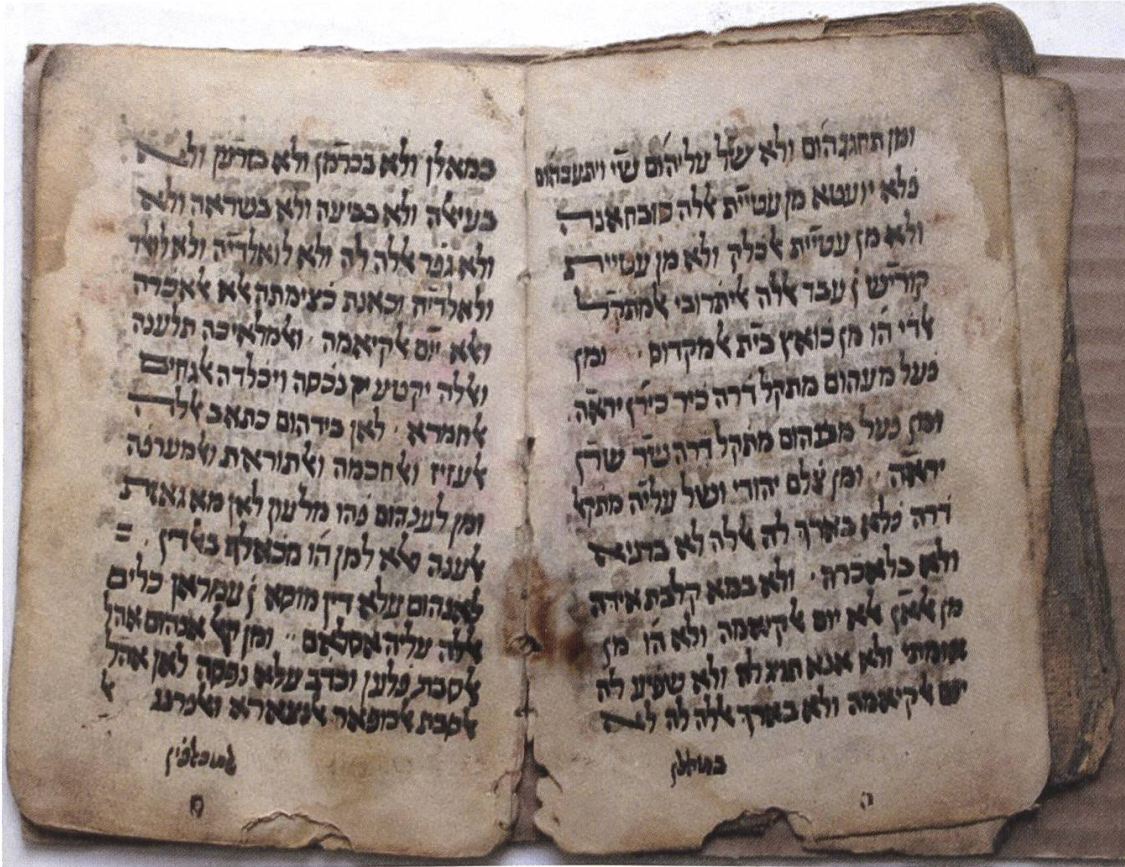 ומן תחגנהום ולא שֹל עליהום שי ויתעבהום
פלא יועטא מן עטיית אללה סובחאנה
ולא מן עטיית אלכלק ולא מן עטיית
קורייש ן עבד אללה אליתרובי
אלדי הו מן כואץ בית אלמקדוס ומן
פעל מעהום מתקל דרה כיר כירן יראה
ומן פעל מבנהום מתקל דרה שר שרן
יראה ומן צלם יהודי ושל עליה מתקאל
דרה פלא בארך לה אללה לא בדניא
ולא בלאכרה ולא במא קלבת אידה
מן אלאן אלא יום אלקיאמה ולא הו מן
אומתי ולא אנא תניג לה ולא שפיע לה
יום אלקיאמה ולא בארך אללה לה לא
במאלן
ה
במאלן ולא בכרמן ולא בזרען ולא
בעישה ולא בביעה ולא בשראה ולא
ולא גפר אללה לה ולא לואלדיה ולאולאד
ולאלדיה וכאנת כצימתה אלא אלאכרה
ואלא יום אלקיאמה ואלמלאיכה תלענה
ואללה יקטע נפסה ויכלדה אלגחים
אלחמרא לאן בידהום כתאב אללה
אלעזיז ואלחכמה ואלתוראת ואלמערפה
ומן לענהום פהו מלעון לאן מא גאזת
אלענה אלא למן הו מכאלף באלדין
לאנהום עלא דין מוסא ן עמראן כלים
אללה עליה אסלאם ומן קאל אנהום אהל
אלסבת פלען וכדב עלא נפסה לאן אהל
אלסבת אלכופאר אלנצארא ואלפרנג
אלמוכאלפין